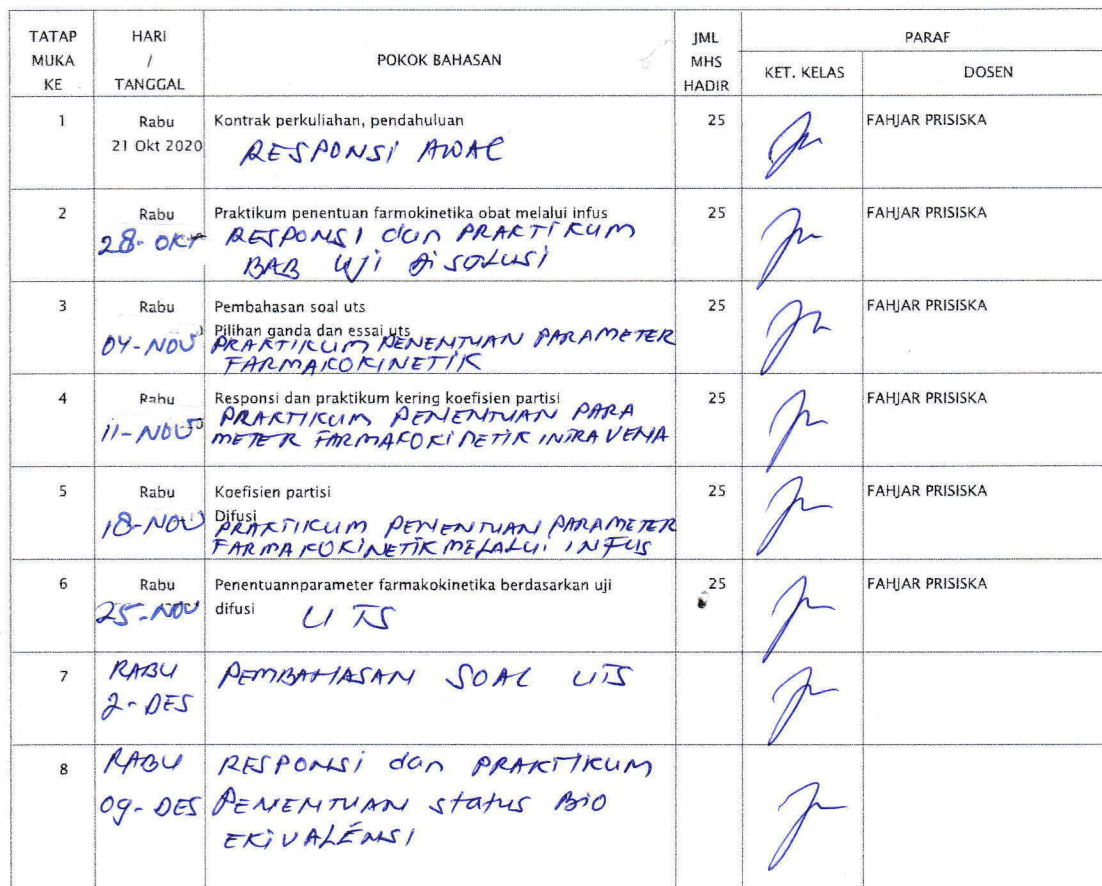 TATAP MUKA KE
HARI / TANGGAL
POKOK BAHASAN
JML MHS HADIR
PARAF
KET. KELAS
DOSEN
1
Rabu
21 Okt 2020
Kontrak perkuliahan, pendahuluan
RESPONSI AWAL
25
FAHJAR PRISISKA
2
Rabu
28-OKT
Praktikum penentuan farmokinetika obat melalui infus
RESPONSI dan PRAKTIKUM
BAB UJI DISOLUSI
25
FAHJAR PRISISKA
3
Rabu
04-NOV
Pembahasan soal uts
Pilihan ganda dan essai uts
PRAKTIKUM PENENTUAN PARAMETER
FARMAKOKINETIK
25
FAHJAR PRISISKA
4
Rabu
11-NOV
Responsi dan praktikum kering koefisien partisi
PRAKTIKUM PENENTUAN PARA
METER FARMAKOKINETIK INTRAVENA
25
FAHJAR PRISISKA
5
Rabu
18-NOV
Koefisien partisi
Difusi
PRAKTIKUM PENENTUAN PARAMETER
FARMAKOKINETIK MELALUI INFUS
25
FAHJAR PRISISKA
6
Rabu
25-NOV
Penentuannparameter farmakokinetika berdasarkan uji
difusi
UTS
25
FAHJAR PRISISKA
7
RABU
2-DES
PEMBAHASAN SOAL UTS
8
RABU
09-DES
RESPONSI dan PRAKTIKUM
PENENTUAN status BIO
EKIVALENSI